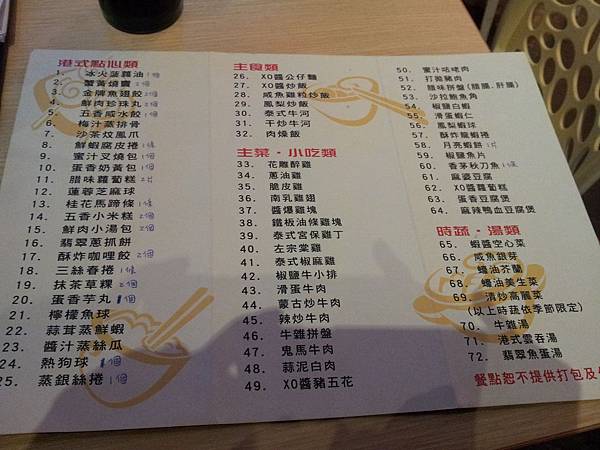 港式點心類
1. 冰火菠蘿油 1個
2. 蟹黃燒賣 2個
3. 金牌鳳翅餃 2個
4. 鮮肉珍珠丸 2個
5. 五香咸水餃 1個
6. 梅汁蒸排骨
7. 沙茶炆鳳爪
8. 鮮蝦腐皮捲 1條
9. 蜜汁叉燒包 1個
10. 蛋香奶黃包 1個
11. 臘味蘿蔔糕 2片
12. 蓮蓉芝麻球
13. 桂花馬蹄條 1個
14. 五香小米糕 2個
15. 鮮肉小湯包 2個
16. 翡翠蔥抓餅
17. 酥炸咖哩餃 2個
18. 三絲春捲 1條
19. 抹茶草粿 2個
20. 蛋香芋丸 1個
21. 檸檬魚球
22. 蒜茸蒸鮮蝦
23. 醬汁蒸絲瓜
24. 熱狗球 1個
25. 蒸銀絲捲 1個
主食類
26. XO醬公仔麵
27. XO醬炒飯
28. 咸魚雞粒炒飯
29. 鳳梨炒飯
30. 泰式牛河
31. 干炒牛河
32. 肉燥飯
主菜·小吃類
33. 花雕醉雞
34. 蔥油雞
35. 脆皮雞
36. 南乳雞翅
37. 醬爆雞塊
38. 鐵板油條雞塊
39. 泰式宮保雞丁
40. 左宗棠雞
41. 泰式椒麻雞
42. 椒鹽牛小排
43. 滑蛋牛肉
44. 蒙古炒牛肉
45. 辣炒牛肉
46. 牛雜拼盤
47. 鬼馬牛肉
48. 蒜泥白肉
49. XO醬豬五花
50. 蜜汁咕咾肉
51. 打拋豬肉
52. 臘味拼盤(臘腸.肝腸)
53. 沙拉鮑魚角
54. 椒鹽白蝦
55. 滑蛋蝦仁
56. 鳳梨蝦球
57. 酥炸龍蝦捲
58. 月亮蝦餅 1片
59. 椒鹽魚片
60. 香茅秋刀魚 1條
61. 麻婆豆腐
62. XO醬蘿蔔糕
63. 蛋香豆腐煲
64. 麻辣鴨血豆腐煲
時蔬·湯類
65. 蝦醬空心菜
66. 咸魚銀芽
67. 蠔油芥蘭
68. 蠔油美生菜
69. 清炒高麗菜
(以上時蔬依季節限定)
70. 牛雜湯
71. 港式雲吞湯
72. 翡翠魚蛋湯
餐點恕不提供打包及